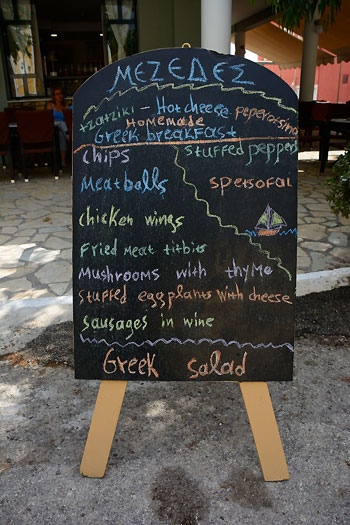 ΜΕΖΕΔΕΣ
tzatziki - Hot cheese peperotsina
Homemade
Greek breakfast
chips
stuffed peppers
Meatballs
spetsofai
chicken wings
Fried meat titbits
Mushrooms with thyme
stuffed eggplants with cheese
sausages in wine
Greek salad